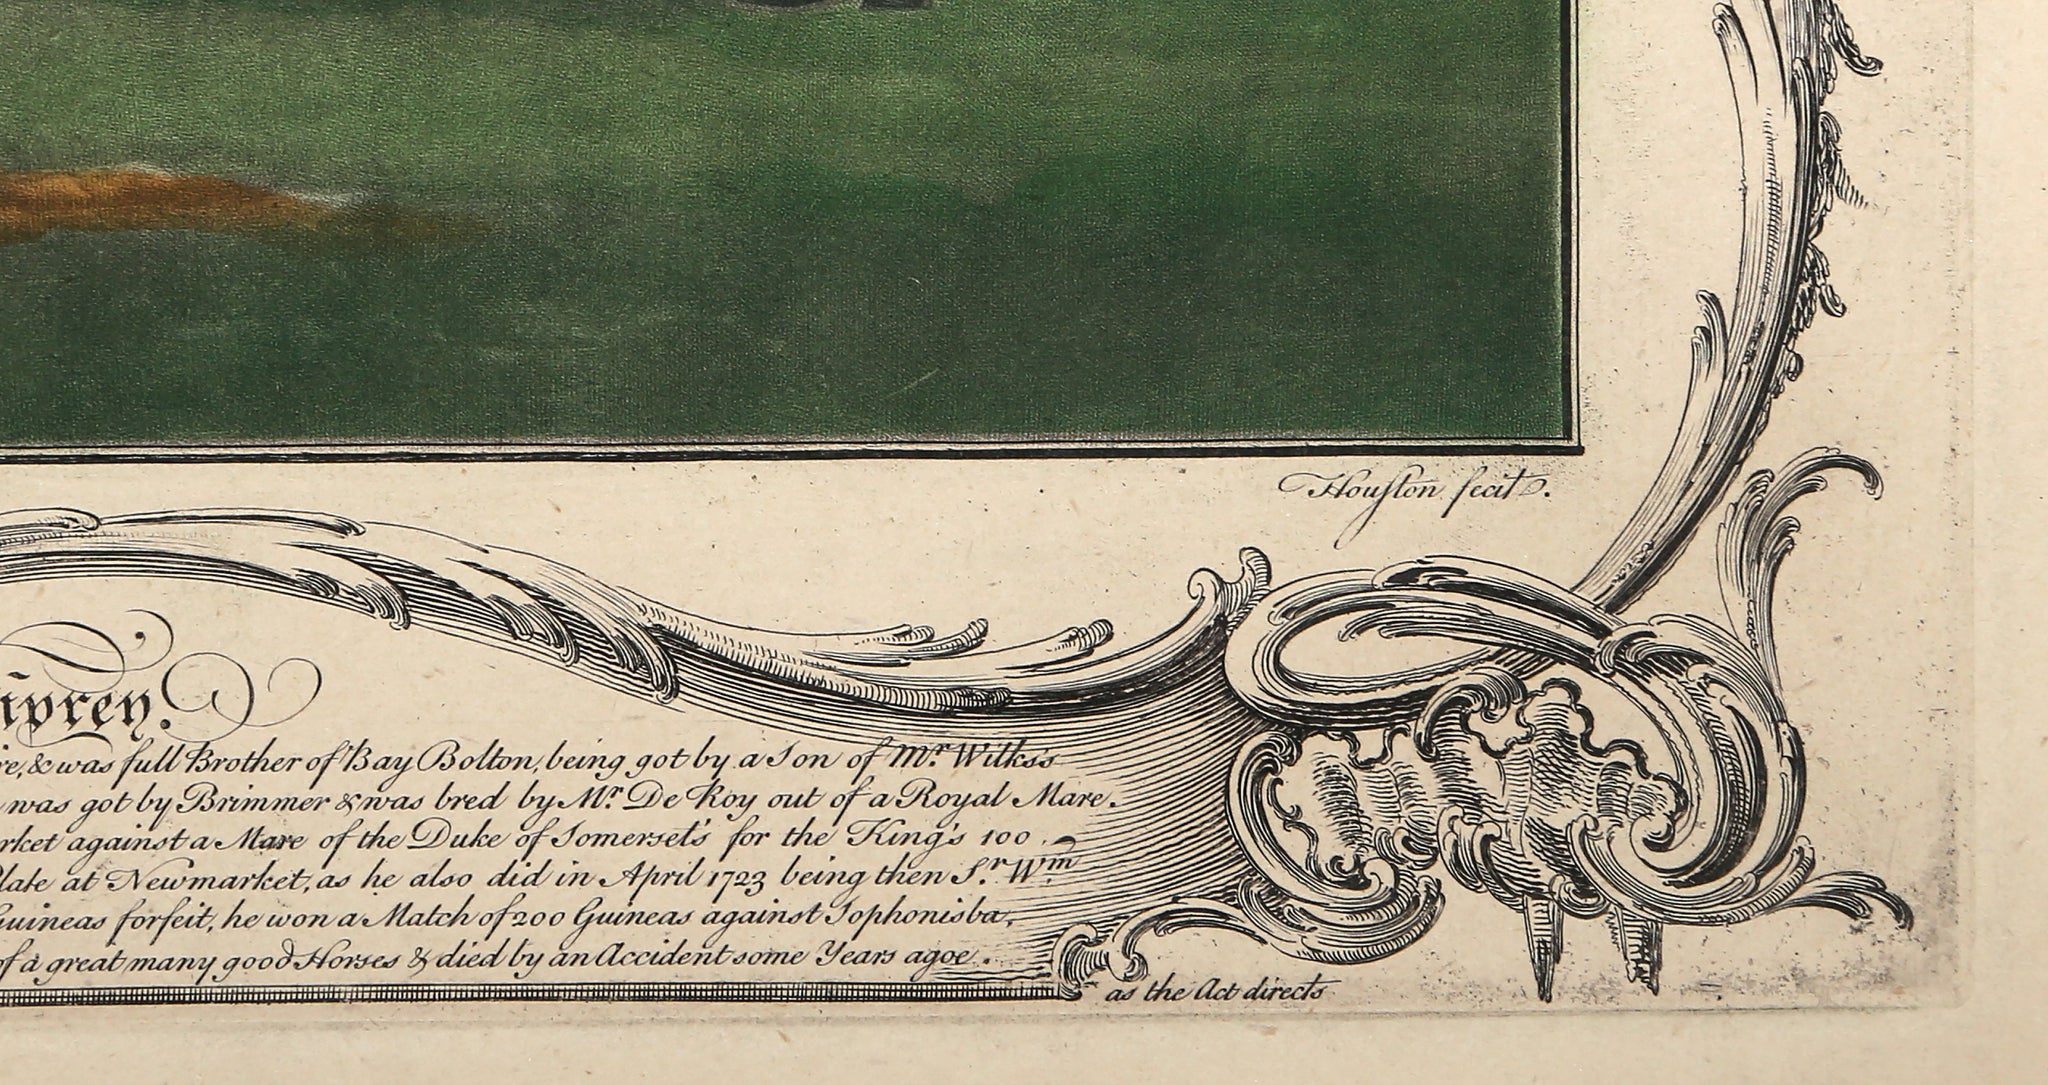 Houſton fecit.
iprey.
re, & was full Brother of Bay Bolton, being got by a Son of Mr. Wilks's
was got by Brimmer & was bred by Mr. De Roy out of a Royal Mare.
rket against a Mare of the Duke of Somerset's for the King's 100
late at Newmarket, as he also did in April 1723 being then Sr. Wm
Guineas forfeit, he won a Match of 200 Guineas against Sophonisba.
of a great many good Horses & died by an Accident some Years agoe.
as the Act directs